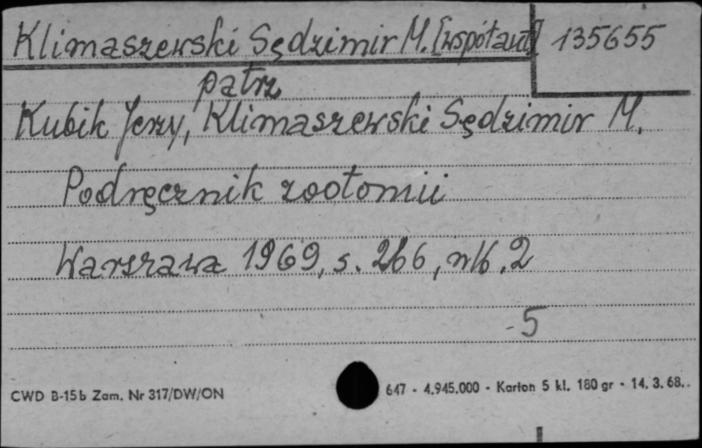 Klimaszewski Sędzimir M. [współaut] 135655
patrz
Kubik Jerzy, Klimaszewski Sędzimir M.
Podręcznik zootomii
Warszawa 1969, s. 266, nlb. 2
-5
CWD B-15b Zam. Nr 317/DW/ON 647 - 4.945.000 - Karton 5 kl. 180 gr - 14. 3. 68..